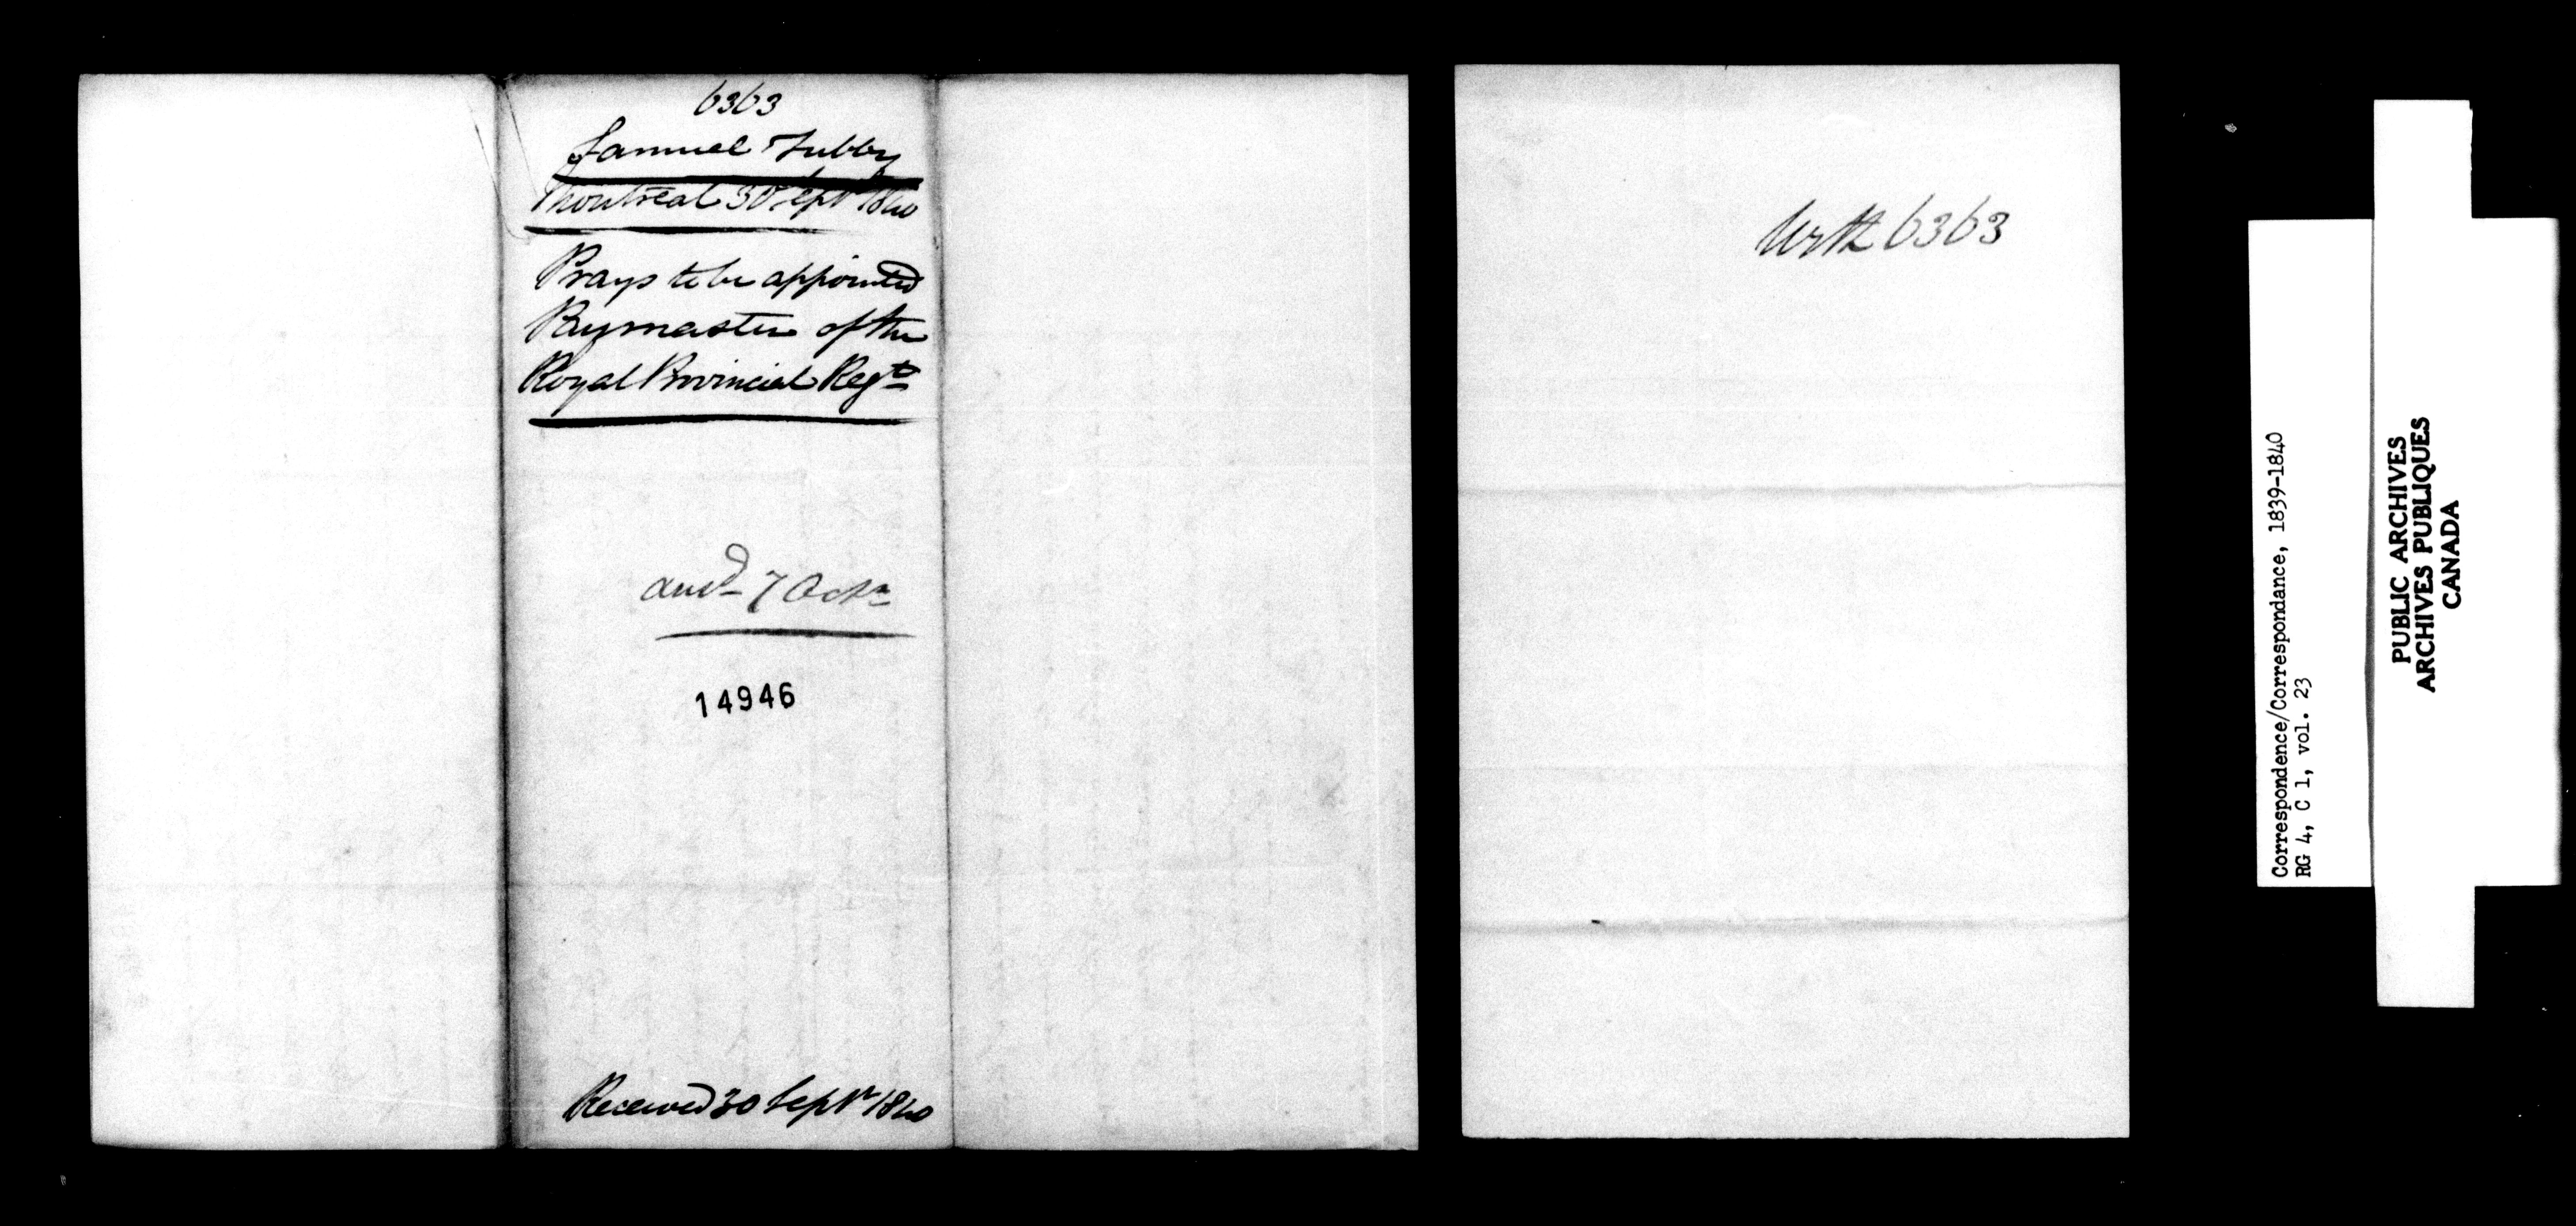 6363
Samuel Tubby
Montreal 30 Septr 1840
Prays to be appointed
Paymaster of the
Royal Provincial Regt
ansd 7 Octr
14946
Received 30 Septr 1840
With 6363
Correspondence/Correspondance, 1839-1840
RG 4, C 1, vol. 23
PUBLIC ARCHIVES
ARCHIVES PUBLIQUES
CANADA